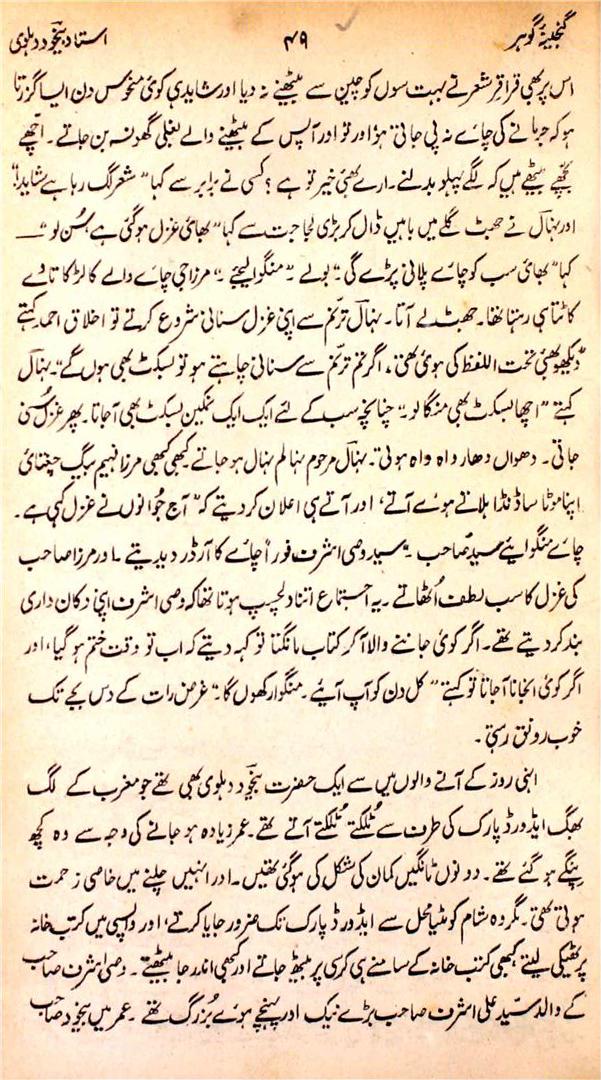 گنجینۂ گوہر ۴۹ استاد بیخود دہلوی
اس پر بھی قراقرِ شعر نے بہت سوں کو چین سے بیٹھنے نہ دیا اور شاید ہی کوئی منحوس دن ایسا گزرتا
ہو کہ جرمانے کی چائے نہ پی جاتی ہو اور تو اور آپس کے بیٹھنے والے بغلی گھونسہ بن جاتے۔ اچھے
بچھے بیٹھے ہیں کہ لگے پہلو بدلنے۔ ارے بھئی خیر تو ہے؟ کسی نے برابر سے کہا "شعر لگ رہا ہے شاید"!
اور نہالؔ نے جھٹ گلے میں باہیں ڈال کر بڑی لجاجت سے کہا "بھائی غزل ہو گئی ہے سُن لو" ــــ
کہا "بھائی سب کو چائے پلانی پڑے گی۔" بولے۔ "منگوا لیجئے۔" مرزا جی چائے والے کا لڑکا تاوے
کاٹتا ہی رہتا تھا۔ جھٹ لے آتا۔ نہالؔ ترنم سے اپنی غزل سنانی شروع کرتے تو اخلاق احمد کہتے
"دیکھو بھئی تحت اللفظ کی ہوئی تھی، اگر تم ترنّم سے سنانی چاہتے ہو تو بسکٹ بھی ہوں گے"۔ نہالؔ
کہتے "اچھا بسکٹ بھی منگالو۔" چنانچہ سب کے لئے ایک ایک نمکین بسکٹ بھی آجاتا۔ پھر غزل سنی
جاتی۔ دھواں دھار واہ واہ ہوتی۔ نہالؔ مرحوم نہالم نہال ہو جاتے۔ کبھی کبھی مرزا فہیم بیگ چغتائی
اپنا موٹا سا ڈنڈا ہلاتے ہوئے آتے، اور آتے ہی اعلان کر دیتے کہ "آج جُوانوں نے غزل کہی ہے۔
چائے منگوایئے سیّد صاحب۔" سید وصی اشرف فوراً چائے کا آرڈر دیدیتے۔ اور مرزا صاحب
کی غزل کا سب لطف اُٹھاتے۔ یہ اجتماع اتنا دلچسپ ہوتا تھا کہ وصی اشرف اپنی دکان داری
بند کر دیتے تھے۔ اگر کوئی جاننے والا آکر کتاب مانگتا تو کہہ دیتے کہ اب تو وقت ختم ہو گیا، اور
اگر کوئی انجانا آجاتا تو کہتے "کل دن کو آپ آیئے۔ منگوا رکھوں گا۔" غرض رات کے دس بجے تک
خوب رونق رہتی۔
انہی روز کے آنے والوں میں سے ایک حضرت بیخودؔ دہلوی بھی تھے جو مغرب کے لگ
بھگ ایڈورڈ پارک کی طرف سے ٹُلکتے ٹُلکتے آتے تھے۔ عمر زیادہ ہو جانے کی وجہ سے وہ کچھ
بینگے ہو گئے تھے۔ دونوں ٹانگیں کمان کی شکل کی ہو گئی تھیں۔ اور انہیں چلنے میں خاصی زحمت
ہوتی تھی۔ مگر وہ شام کو مٹیا محل سے ایڈورڈ پارک تک ضرور جایا کرتے، اور واپسی میں کتب خانہ
پر ٹھیکی لیتے کبھی کتب خانہ کے سامنے ہی کرسی پر بیٹھ جاتے اور کبھی اندر جا بیٹھتے۔ وصی اشرف صاحب
کے والد سیّد علی اشرف صاحب بڑے نیک اور پہنچے ہوئے بُزرگ تھے۔ عمر میں بیخود صاحب